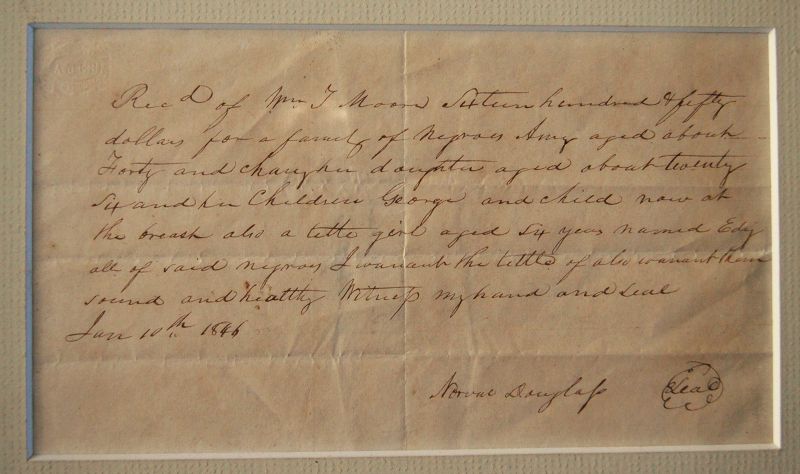 Rec'd of Wm T Moore Sixteen hundred & fifty
dollars for a family of Negroes Amy aged about
Forty and her daughter aged about twenty
Six and her Children George and child now at
the breast also a little girl aged Six years named Edy
all of said negroes I warrant the title of also warrant them
sound and healthy Witness my hand and Seal
Jan 10th 1846
Norval Douglass Seal